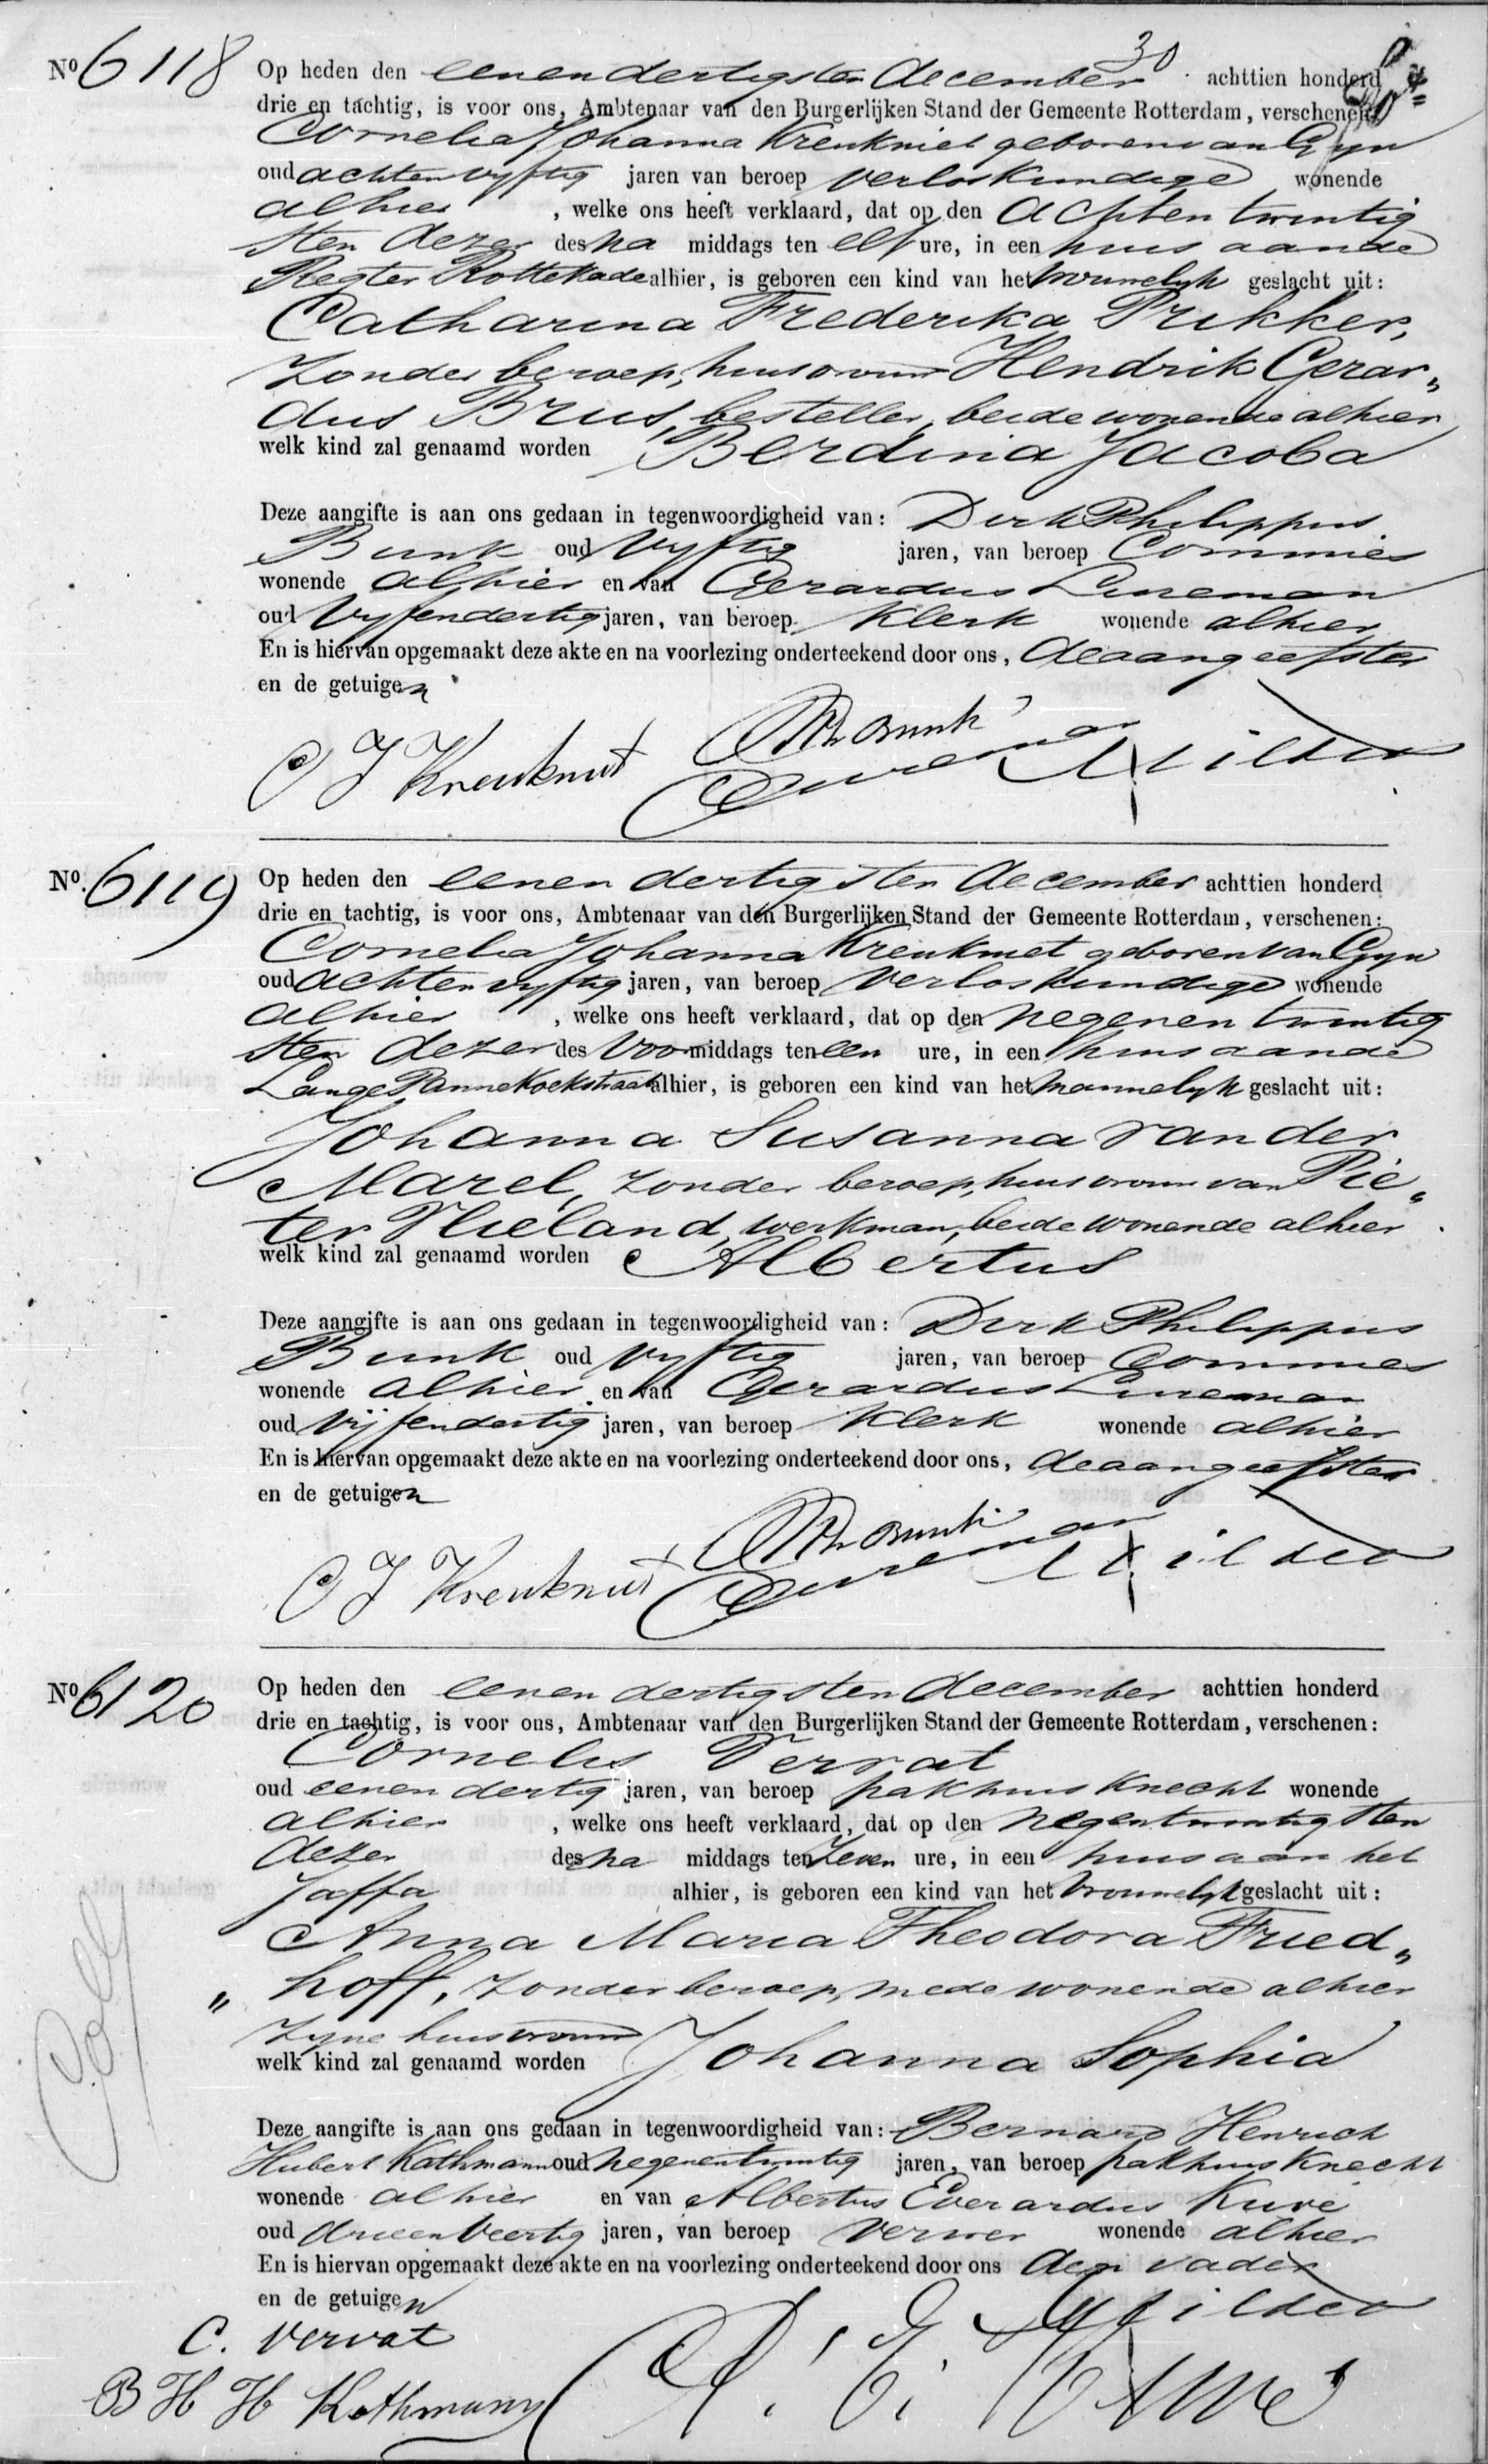 30
No 6118 Op heden den eenen dertigsten December achttien honderd
drie en tachtig, is voor ons, Ambtenaar van den Burgerlijken Stand der Gemeente Rotterdam, verschenen:
Cornelia Johanna Kreukniet geboren van Gyn
oud achtenvyftig jaren van beroep verloskundige wonende
alhier , welke ons heeft verklaard, dat op den Achtentwintig
sten dezer des na middags ten elf ure, in een huis aande
Regter Rottekade alhier, is geboren een kind van het vrouwelyk geslacht uit:
Catharina Frederika Prikker,
zonder beroep, huisvrouw Hendrik Gerar„
dus Brus, besteller, beide wonende alhier
welk kind zal genaamd worden Berdina Jacoba
Deze aangifte is aan ons gedaan in tegenwoordigheid van: Dirk Philippus
Bunk oud vyftig jaren, van beroep Commies
wonende alhier en van Gerardus
oud vyfendertig jaren, van beroep Klerk wonende alhier
En is hiervan opgemaakt deze akte en na voorlezing onderteekend door ons, de aangeefster
en de getuigen
C J Kreukniet Bunk
No. 6119 Op heden den eenen dertigsten December achttien honderd
drie en tachtig, is voor ons, Ambtenaar van den Burgerlijken Stand der Gemeente Rotterdam, verschenen:
Cornelia Johanna Kreukniet geboren van Gyn
oud achtenvyftig jaren, van beroep verloskundige wonende
alhier , welke ons heeft verklaard, dat op den negenentwintig
sten dezer des Voormiddags ten een ure, in een huis aande
Lange Pannekoekstraat alhier, is geboren een kind van het mannelyk geslacht uit:
Johanna Susanna van der
Marel, zonder beroep, huisvrouw van Pie„
ter Vlieland, werkman, beide wonende alhier
welk kind zal genaamd worden Albertus
Deze aangifte is aan ons gedaan in tegenwoordigheid van: Dirk Philippus
Bunk oud vyftig jaren, van beroep Commies
wonende alhier en van Gerardus
oud vijfendertig jaren, van beroep Klerk wonende alhier
En is hiervan opgemaakt deze akte en na voorlezing onderteekend door ons, de aangeefster
en de getuigen
C J Kreukniet Bunk
No 6120 Op heden den eenen dertigsten December achttien honderd
drie en tachtig, is voor ons, Ambtenaar van den Burgerlijken Stand der Gemeente Rotterdam, verschenen:
Cornelis Vervat
oud eenen dertig jaren, van beroep pakhuis knecht wonende
alhier , welke ons heeft verklaard, dat op den negentwintigsten
dezer des na middags ten zeven ure, in een huis aan het
Jaffa alhier, is geboren een kind van het vrouwelyk geslacht uit:
Anna Maria Theodora Fried„
„ hoff, zonder beroep, mede wonende alhier
zyne huisvrouw
welk kind zal genaamd worden Johanna Sophia
Deze aangifte is aan ons gedaan in tegenwoordigheid van: Bernard Henrich
Hubert Kathmann oud negenentwintig jaren, van beroep pakhuis Knecht
wonende alhier en van Albertus Everardus Kuvé
oud drieenveertig jaren, van beroep verwer wonende alhier
En is hiervan opgemaakt deze akte en na voorlezing onderteekend door ons den vader
en de getuigen
C. Vervat
B H H Kathmann